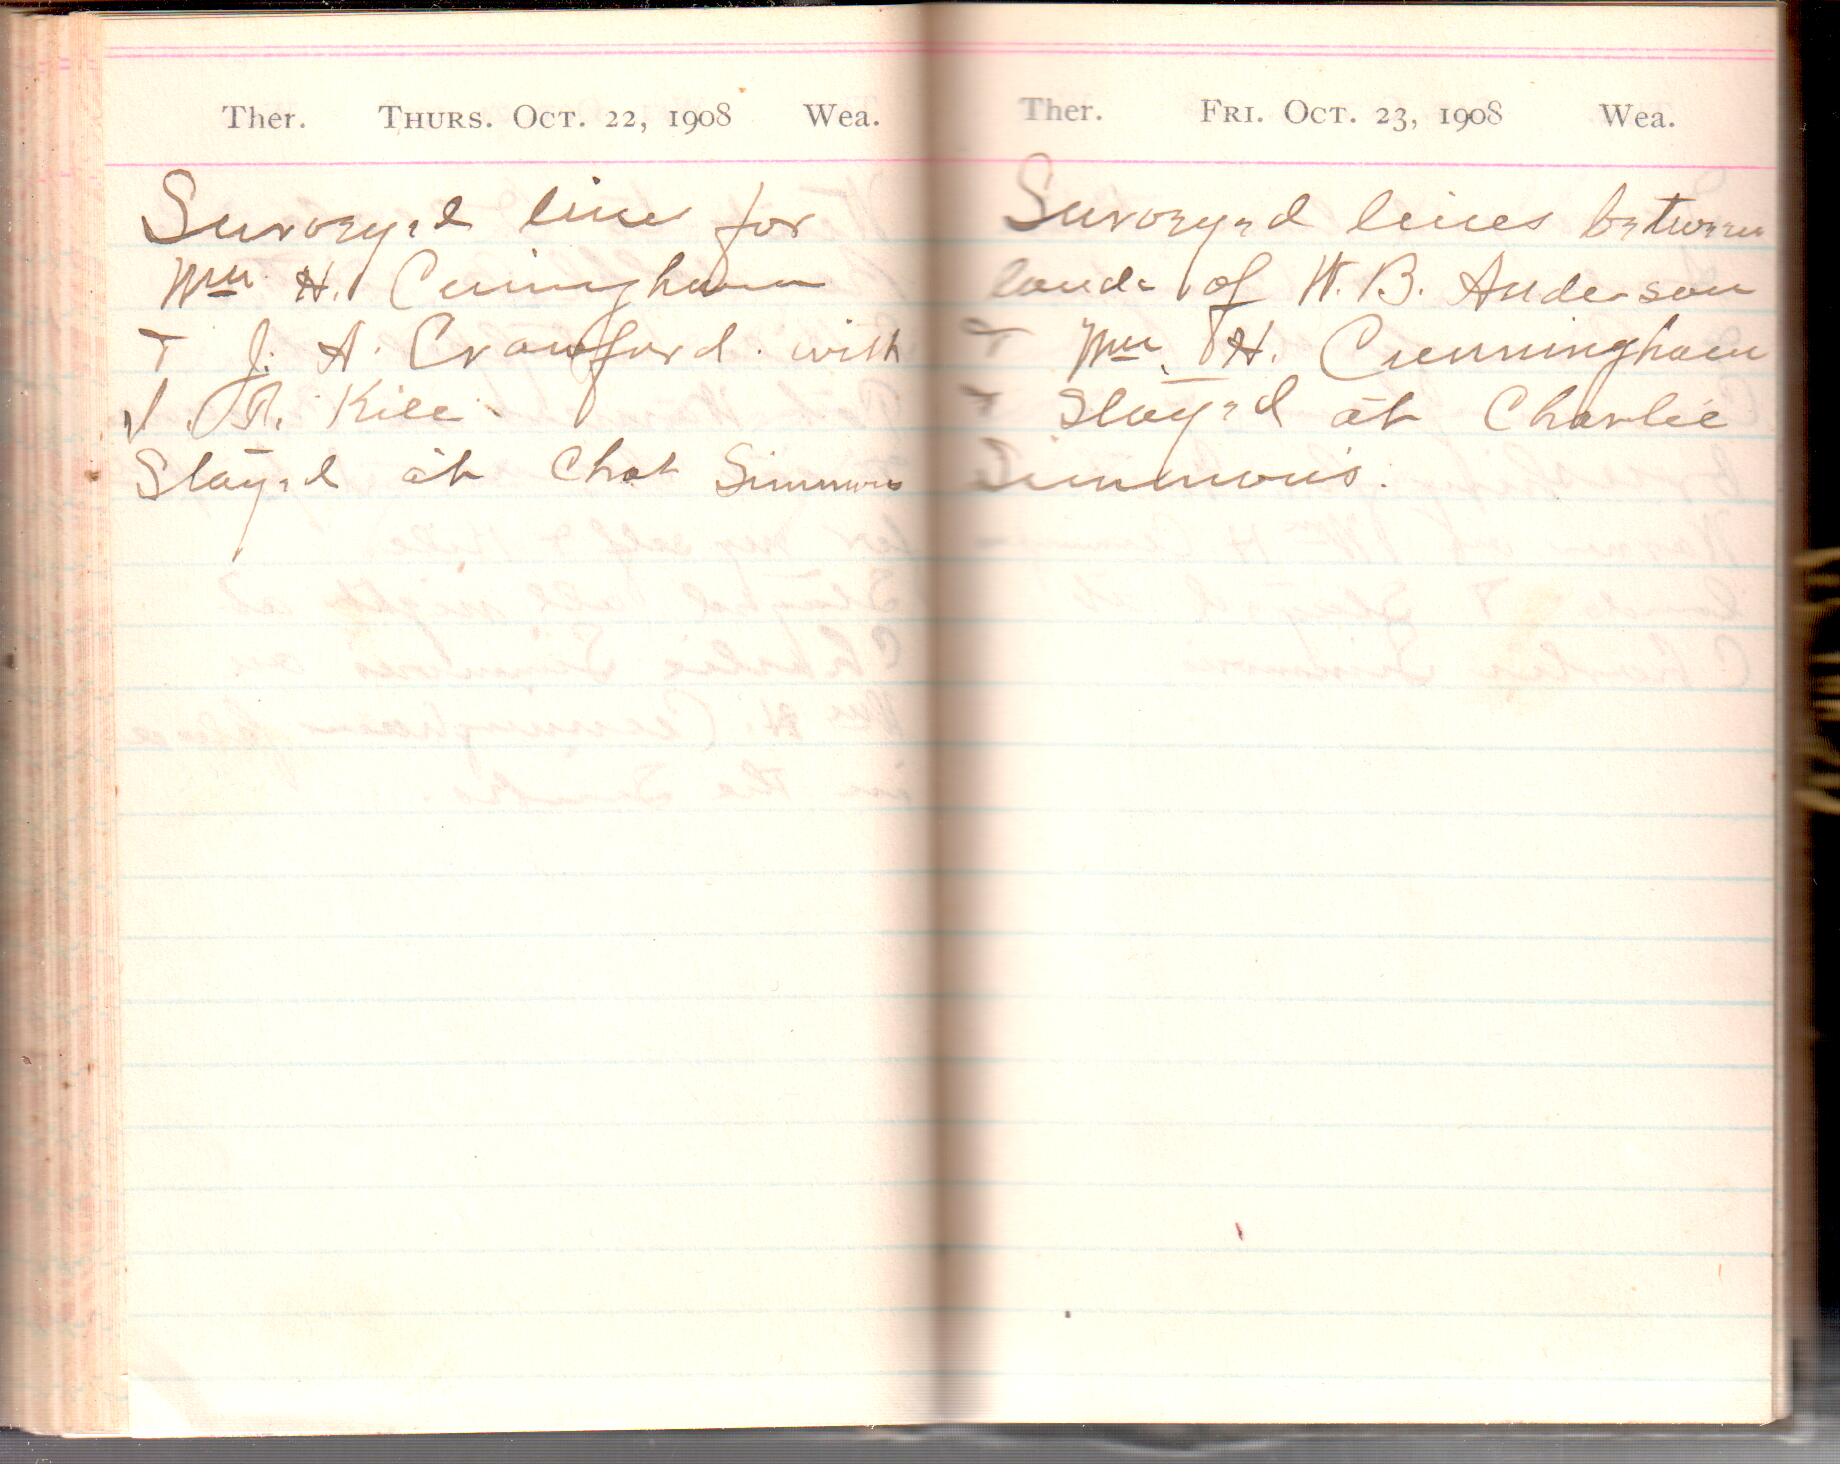 Ther. Thurs. Oct. 22, 1908 Wea.
Surveyed line for
Wm H. Cuningham
& J. A. Crawford. with
J. R. Kile.
Stayed at Chat Simmons
Ther. Fri. Oct. 23, 1908 Wea.
Surveyed lines between
lands of W. B. Anderson
& Wm. H. Cunningham
& Stayed at Charlie
Simmons.